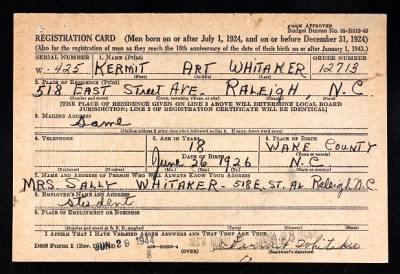 FORM APPROVED
Budget Bureau No. 33-R112-43
REGISTRATION CARD (Men born on or after July 1, 1924, and on or before December 31, 1924)
(Also for the registration of men as they reach the 18th anniversary of the date of their birth on or after January 1, 1943.)
SERIAL NUMBER 1. NAME (Print) ORDER NUMBER
W-425 KERMIT ART WHITAKER 12713
(First) (Middle) (Last)
2. PLACE OF RESIDENCE (Print)
518 EAST STREET AVE. RALEIGH, N.C
(Number and street) (Town, township, village, or city) (County) (State)
[THE PLACE OF RESIDENCE GIVEN ON LINE 2 ABOVE WILL DETERMINE LOCAL BOARD
JURISDICTION; LINE 2 OF REGISTRATION CERTIFICATE WILL BE IDENTICAL]
3. MAILING ADDRESS
Same
4. TELEPHONE 5. AGE IN YEARS 6. PLACE OF BIRTH
18 WAKE COUNTY
DATE OF BIRTH (Town or county)
June 26 1926 N.C.
(Exchange) (Number) (Mo.) (Day) (Yr.) (State or country)
7. NAME AND ADDRESS OF PERSON WHO WILL ALWAYS KNOW YOUR ADDRESS
MRS. SALLY WHITAKER - 518 E. ST. AV. Raleigh N.C.
8. EMPLOYER'S NAME AND ADDRESS
Student
9. PLACE OF EMPLOYMENT OR BUSINESS
(Number and street or R. F. D. number) (Town) (County) (State)
I AFFIRM THAT I HAVE VERIFIED ABOVE ANSWERS AND THAT THEY ARE TRUE.
DSS Form 1
JUN 29 1944
Kermit Whitaker